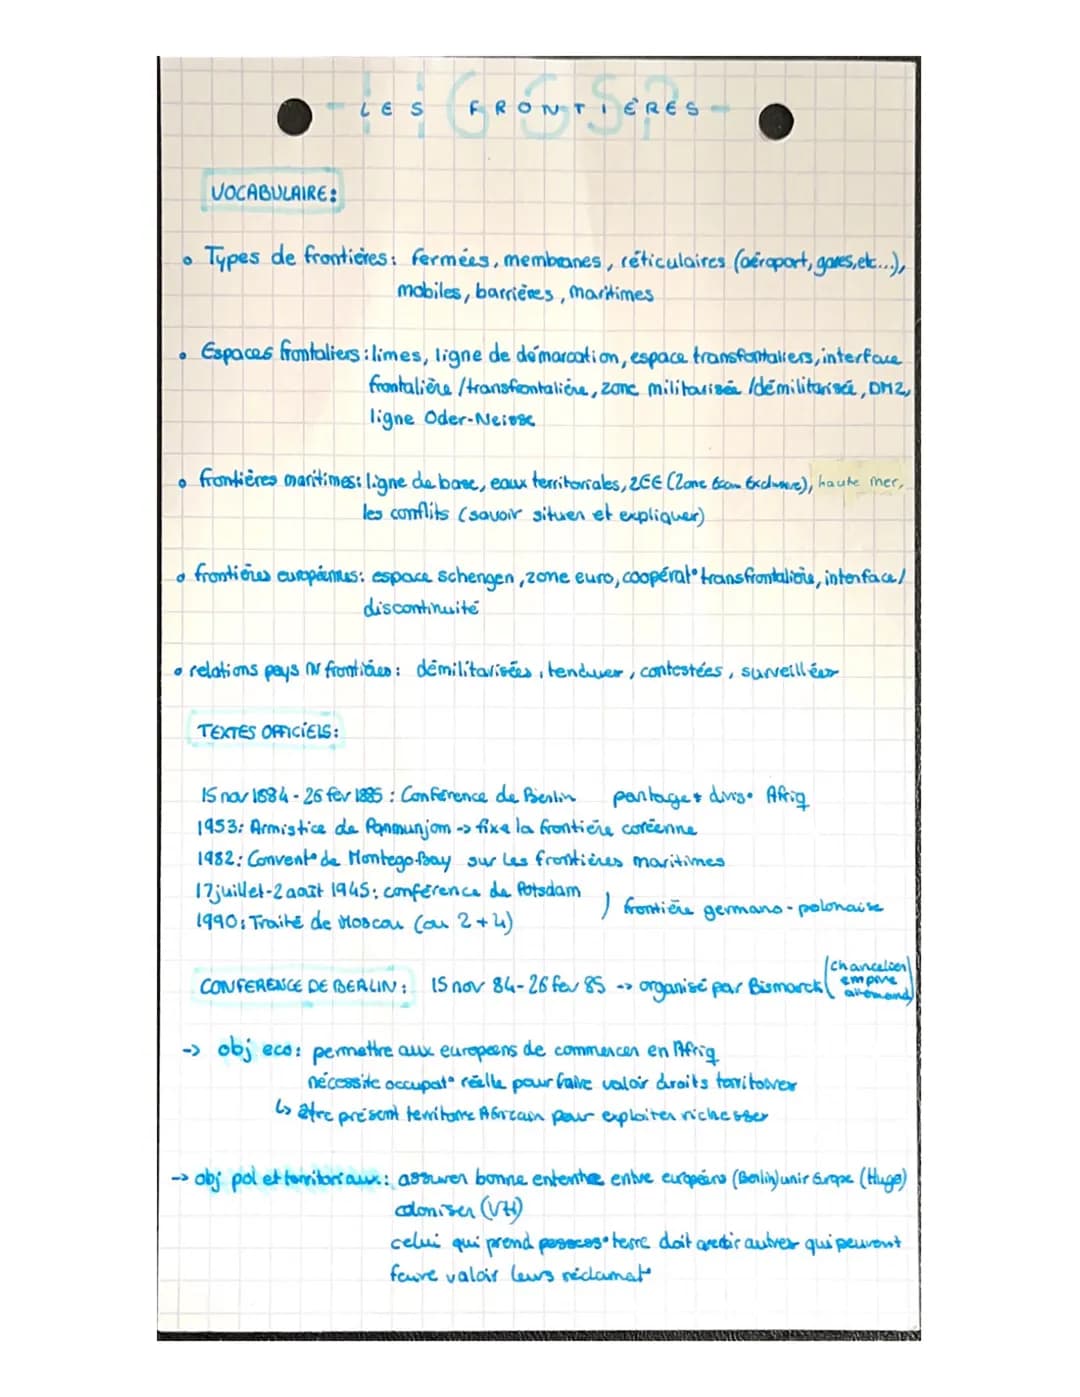 HGGSP
- LES FRONTIÈRES -
VOCABULAIRE:
• Types de frontières: fermées, membranes, réticulaires (aéroport, gares, etc...),
mobiles, barrières, maritimes
• Espaces frontaliers: limes, ligne de démarcation, espace transfontaliers, interface
frontalière / transfrontalière, zone militarisée / démilitarisée, DMZ,
ligne Oder-Neisse
• frontières maritimes: ligne de base, eaux territoriales, ZEE (Zone Econ Exclusive), haute mer,
les conflits (savoir situer et expliquer)
• frontières européennes: espace schengen, zone euro, coopérat° transfrontalière, interface/
discontinuité
• relations pays frontières: démilitarisées, tendues, contestées, surveillées
TEXTES OFFICIELS:
15 nov 1884 - 26 fev 1885: Conférence de Berlin partage + divis° Afriq
1953: Armistice de Panmunjom -> fixe la frontière coréenne
1982: Convent° de Montego-Bay sur les frontières maritimes
17 juillet - 2 août 1945: conférence de Potsdam
1990: Traité de Moscou (ou 2+4) ) frontière germano-polonaise
CONFERENCE DE BERLIN: 15 nov 84 - 26 fev 85 -> organisé par Bismarck (chancelier empire allemand)
-> obj eco: permettre aux européens de commencer en Afriq
nécessite occupat° réelle pour faire valoir droits territoires
↳ être présent territoire Africain pour exploiter richesses
-> obj pol et territoriaux: assurer bonne entente entre européens (Berlin) unir Europe (Hugo)
coloniser (VH)
celui qui prend possess° terre doit avertir autres qui peuvent
faire valoir leurs réclamat°